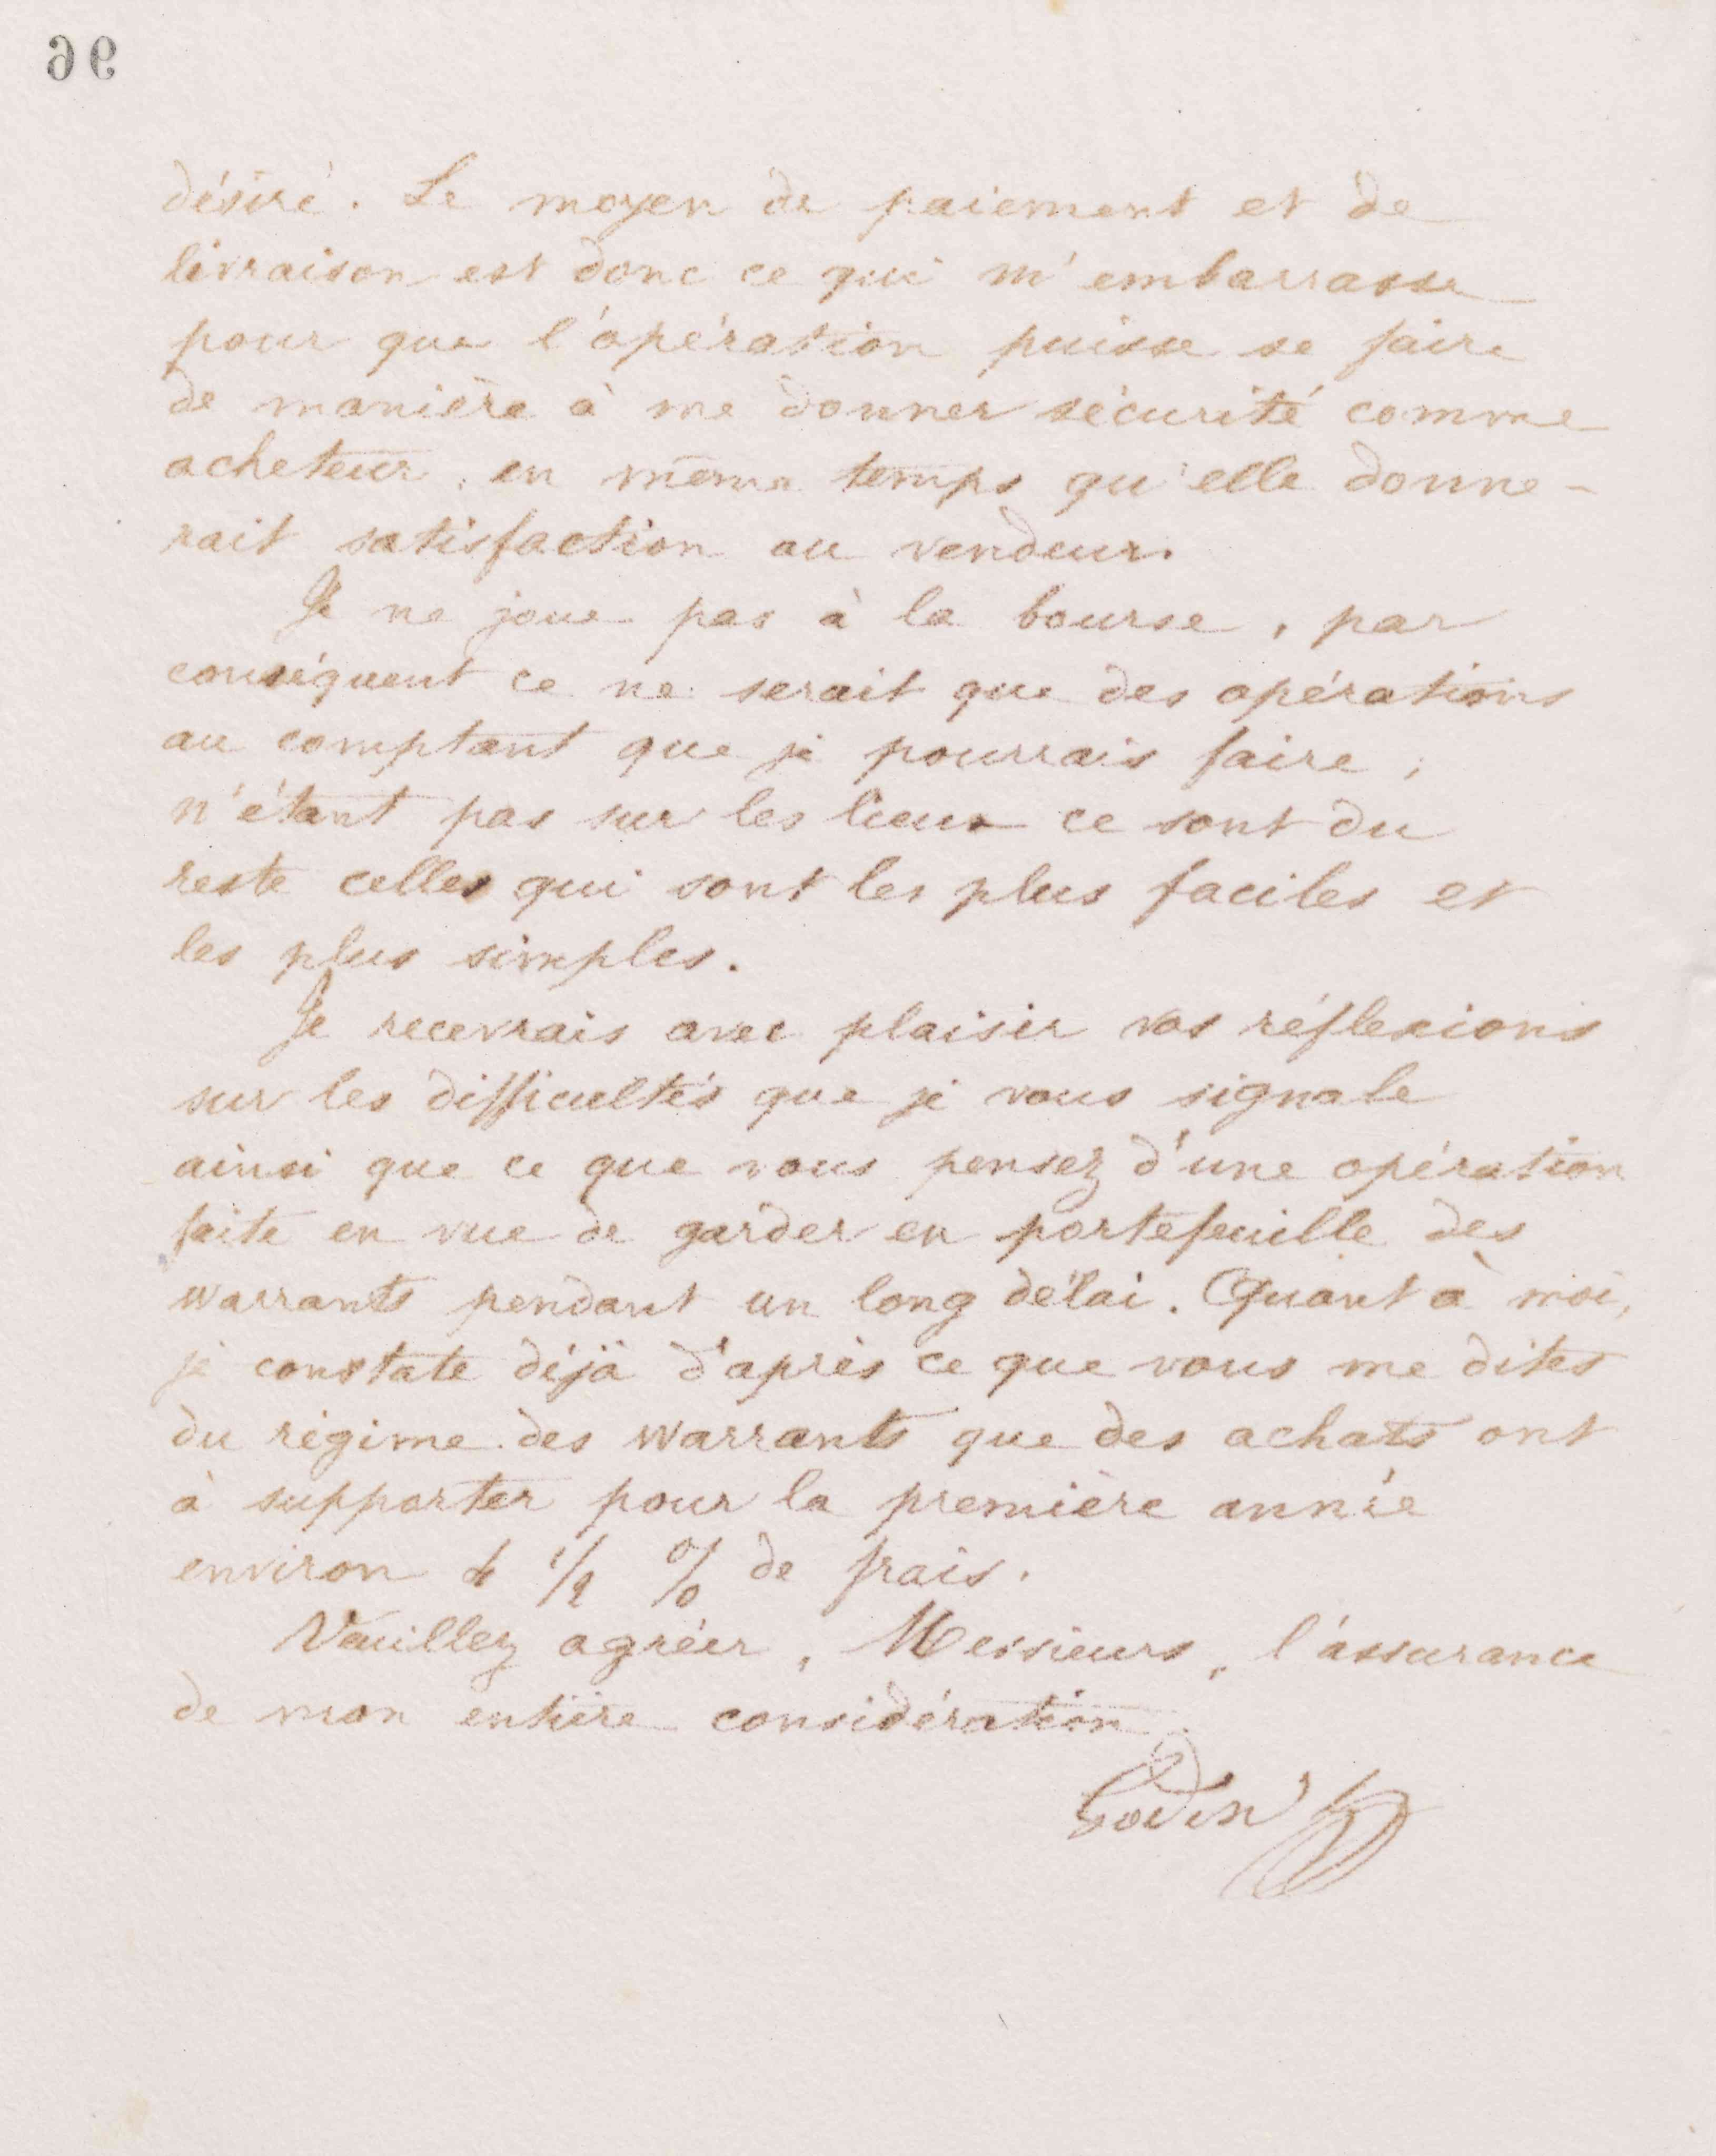 96
désiré. Le moyen de paiement et de
livraison est donc ce qui m'embarrasse
pour que l'opération puisse se faire
de manière à me donner sécurité comme
acheteur, en même temps qu'elle donne-
rait satisfaction au vendeur.
Je ne joue pas à la bourse, par
conséquent ce ne serait que des opérations
au comptant que je pourrais faire ;
n'étant pas sur les lieux ce sont du
reste celles qui sont les plus faciles et
les plus simples.
Je recevrais avec plaisir vos réflexions
sur les difficultés que je vous signale
ainsi que ce que vous pensez d'une opération
faite en vue de garder en portefeuille des
warrants pendant un long délai. Quant à moi,
je constate déjà d'après ce que vous me dites
du régime des warrants que des achats ont
à supporter pour la première année
environ 4 1/2 % de frais.
Veuillez agréer, Messieurs, l'assurance
de mon entière considération
Godin